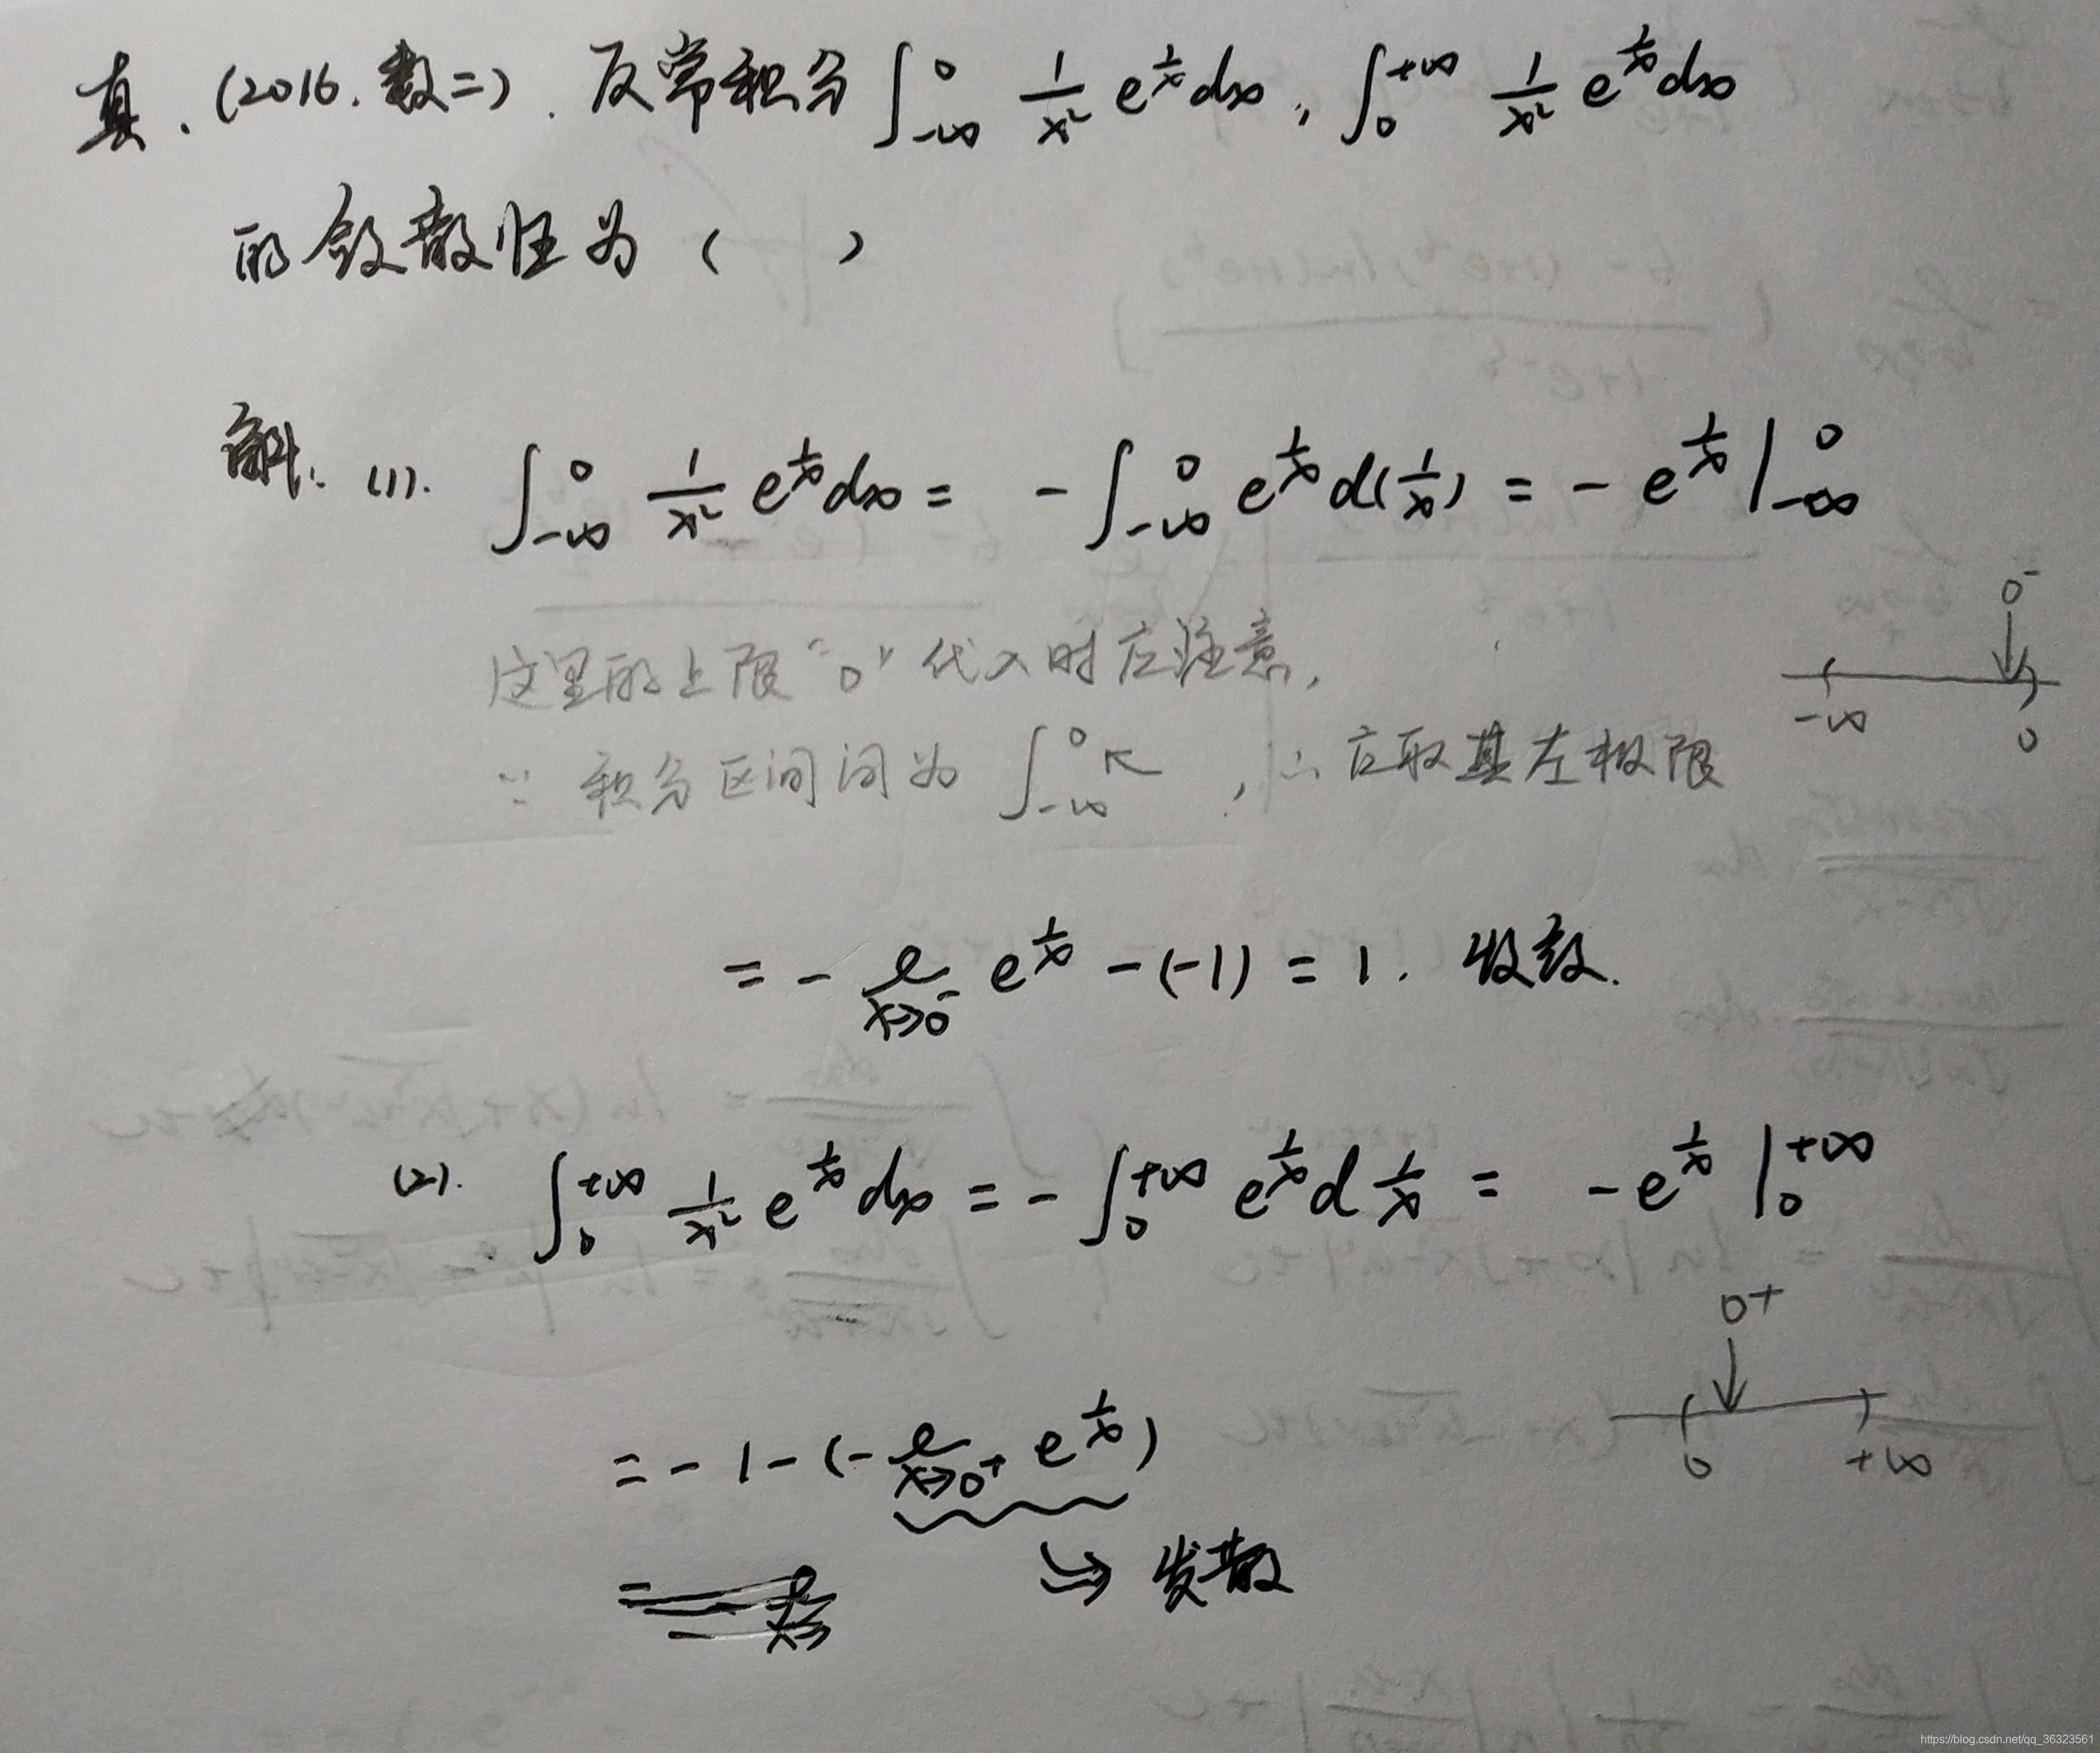 真.(2016.数二).反常积分∫_{-∞}^{0} 1/x² e^{1/x}dx,∫_{0}^{+∞} 1/x² e^{1/x}dx
的敛散性为( )
解:(1). ∫_{-∞}^{0} 1/x² e^{1/x}dx = -∫_{-∞}^{0} e^{1/x}d(1/x) = -e^{1/x}|_{-∞}^{0}
0⁻
-∞ 0
这里的上限"0"代入时应注意,
∵ 积分区间间为 ∫_{-∞}^{0} ↖ ,∴应取其左极限
= -lim_{x→0⁻} e^{1/x} -(-1) = 1. 收敛.
(2). ∫_{0}^{+∞} 1/x² e^{1/x}dx = -∫_{0}^{+∞} e^{1/x}d 1/x = -e^{1/x}|_{0}^{+∞}
0⁺
0 +∞
= -1-(-lim_{x→0⁺} e^{1/x})
→ 发散
https://blog.csdn.net/qq_36323561